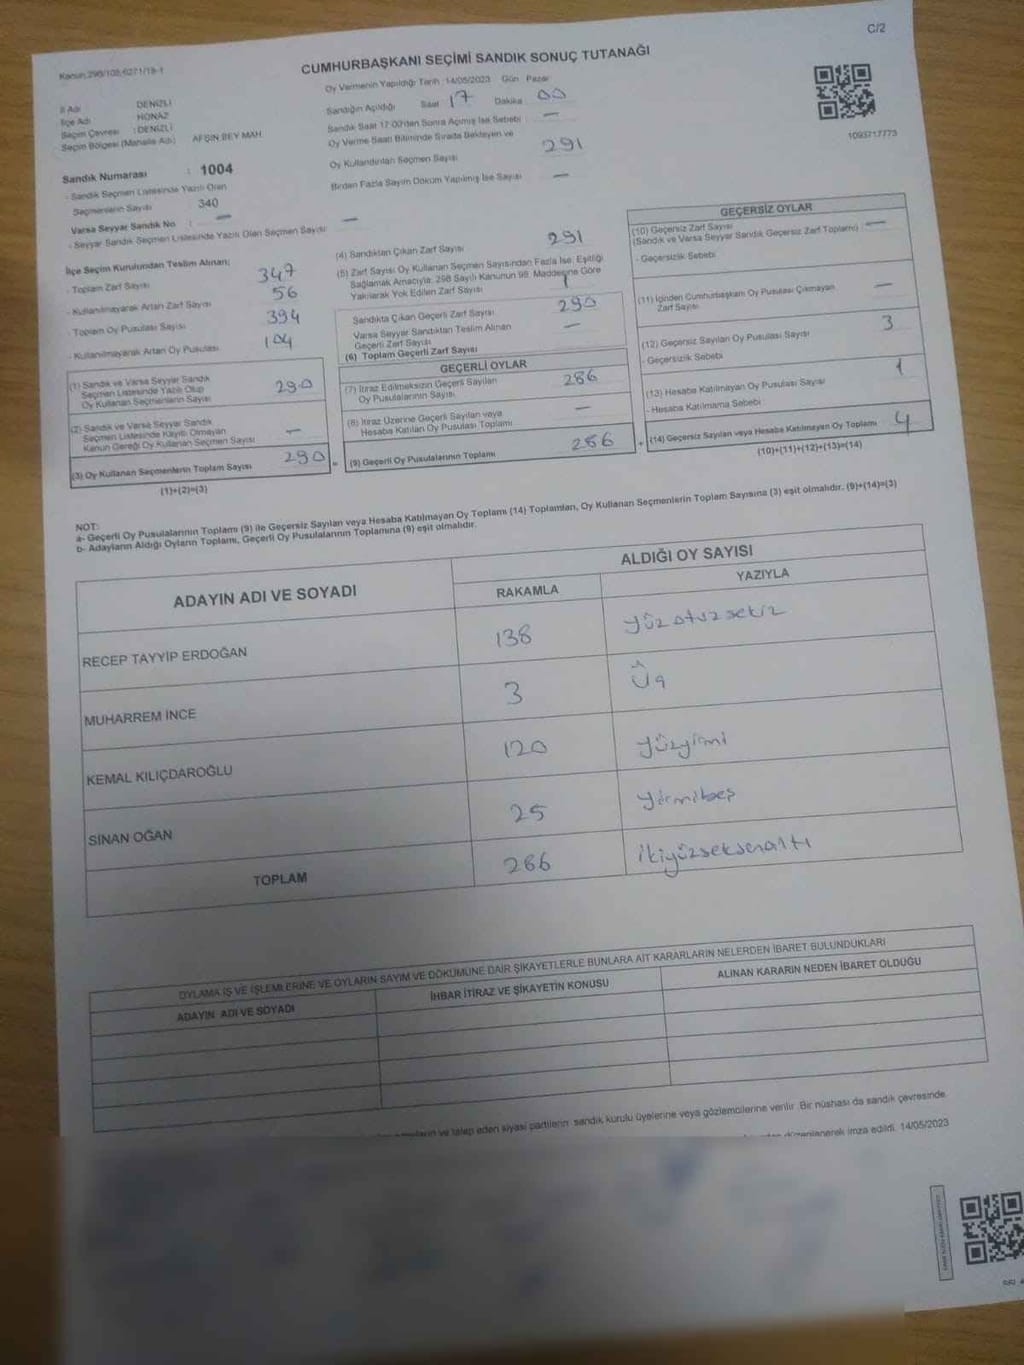 C/2
Kanun:298/105,6271/19-1
CUMHURBAŞKANI SEÇİMİ SANDIK SONUÇ TUTANAĞI
İl Adı : DENİZLİ
İlçe Adı : HONAZ
Seçim Çevresi : DENİZLİ
Seçim Bölgesi (Mahalle Adı) : AFŞİN BEY MAH.
Sandık Numarası : 1004
- Sandık Seçmen Listesinde Yazılı Olan
Seçmenlerin Sayısı 340
Varsa Seyyar Sandık No : —
- Seyyar Sandık Seçmen Listesinde Yazılı Olan Seçmen Sayısı —
Oy Vermenin Yapıldığı Tarih :14/05/2023 Gün : Pazar
Sandığın Açıldığı Saat : 17 Dakika : 00
Sandık Saat 17:00'den Sonra Açılmış İse Sebebi : —
Oy Verme Saati Bitiminde Sırada Bekleyen ve
Oy Kullandırılan Seçmen Sayısı 291
Birden Fazla Sayım Döküm Yapılmış İse Sayısı —
1093717773
İlçe Seçim Kurulundan Teslim Alınan;
- Toplam Zarf Sayısı 347
- Kullanılmayarak Artan Zarf Sayısı 56
- Toplam Oy Pusulası Sayısı 394
- Kullanılmayarak Artan Oy Pusulası 104
(1) Sandık ve Varsa Seyyar Sandık
Seçmen Listesinde Yazılı Olup
Oy Kullanan Seçmenlerin Sayısı 290
(2) Sandık ve Varsa Seyyar Sandık
Seçmen Listesinde Kayıtlı Olmayan
Kanun Gereği Oy Kullanan Seçmen Sayısı —
(3) Oy Kullanan Seçmenlerin Toplam Sayısı 290
(1)+(2)=(3)
(4) Sandıktan Çıkan Zarf Sayısı 291
(5) Zarf Sayısı Oy Kullanan Seçmen Sayısından Fazla İse, Eşitliği
Sağlamak Amacıyla; 298 Sayılı Kanunun 98. Maddesine Göre
Yakılarak Yok Edilen Zarf Sayısı 1
Sandıkta Çıkan Geçerli Zarf Sayısı 290
Varsa Seyyar Sandıktan Teslim Alınan
Geçerli Zarf Sayısı —
(6) Toplam Geçerli Zarf Sayısı
GEÇERLİ OYLAR
(7) İtiraz Edilmeksizin Geçerli Sayılan
Oy Pusulalarının Sayısı 286
(8) İtiraz Üzerine Geçerli Sayılan veya
Hesaba Katılan Oy Pusulası Toplamı —
(9) Geçerli Oy Pusulalarının Toplamı 286
GEÇERSİZ OYLAR
(10) Geçersiz Zarf Sayısı
(Sandık ve Varsa Seyyar Sandık Geçersiz Zarf Toplamı) —
- Geçersizlik Sebebi :
(11) İçinden Cumhurbaşkanı Oy Pusulası Çıkmayan
Zarf Sayısı —
(12) Geçersiz Sayılan Oy Pusulası Sayısı 3
- Geçersizlik Sebebi
(13) Hesaba Katılmayan Oy Pusulası Sayısı 1
- Hesaba Katılmama Sebebi :
(14) Geçersiz Sayılan veya Hesaba Katılmayan Oy Toplamı 4
(10)+(11)+(12)+(13)=(14)
NOT:
a- Geçerli Oy Pusulalarının Toplamı (9) ile Geçersiz Sayılan veya Hesaba Katılmayan Oy Toplamı (14) Toplamları, Oy Kullanan Seçmenlerin Toplam Sayısına (3) eşit olmalıdır. (9)+(14)=(3)
b- Adayların Aldığı Oyların Toplamı, Geçerli Oy Pusulalarının Toplamına (9) eşit olmalıdır.
ADAYIN ADI VE SOYADI ALDIĞI OY SAYISI
RAKAMLA YAZIYLA
RECEP TAYYİP ERDOĞAN 138 yüzotuzsekiz
MUHARREM İNCE 3 üç
KEMAL KILIÇDAROĞLU 120 yüzyirmi
SİNAN OĞAN 25 yirmibeş
TOPLAM 286 ikiyüzseksenaltı
OYLAMA İŞ VE İŞLEMLERİNE VE OYLARIN SAYIM VE DÖKÜMÜNE DAİR ŞİKAYETLERLE BUNLARA AİT KARARLARIN NELERDEN İBARET BULUNDUKLARI
ADAYIN ADI VE SOYADI İHBAR İTİRAZ VE ŞİKAYETİN KONUSU ALINAN KARARIN NEDEN İBARET OLDUĞU
ve talep eden siyasi partilerin sandık kurulu üyelerine veya gözlemcilerine verilir. Bir nüshası da sandık çevresinde
düzenlenerek imza edildi. 14/05/2023